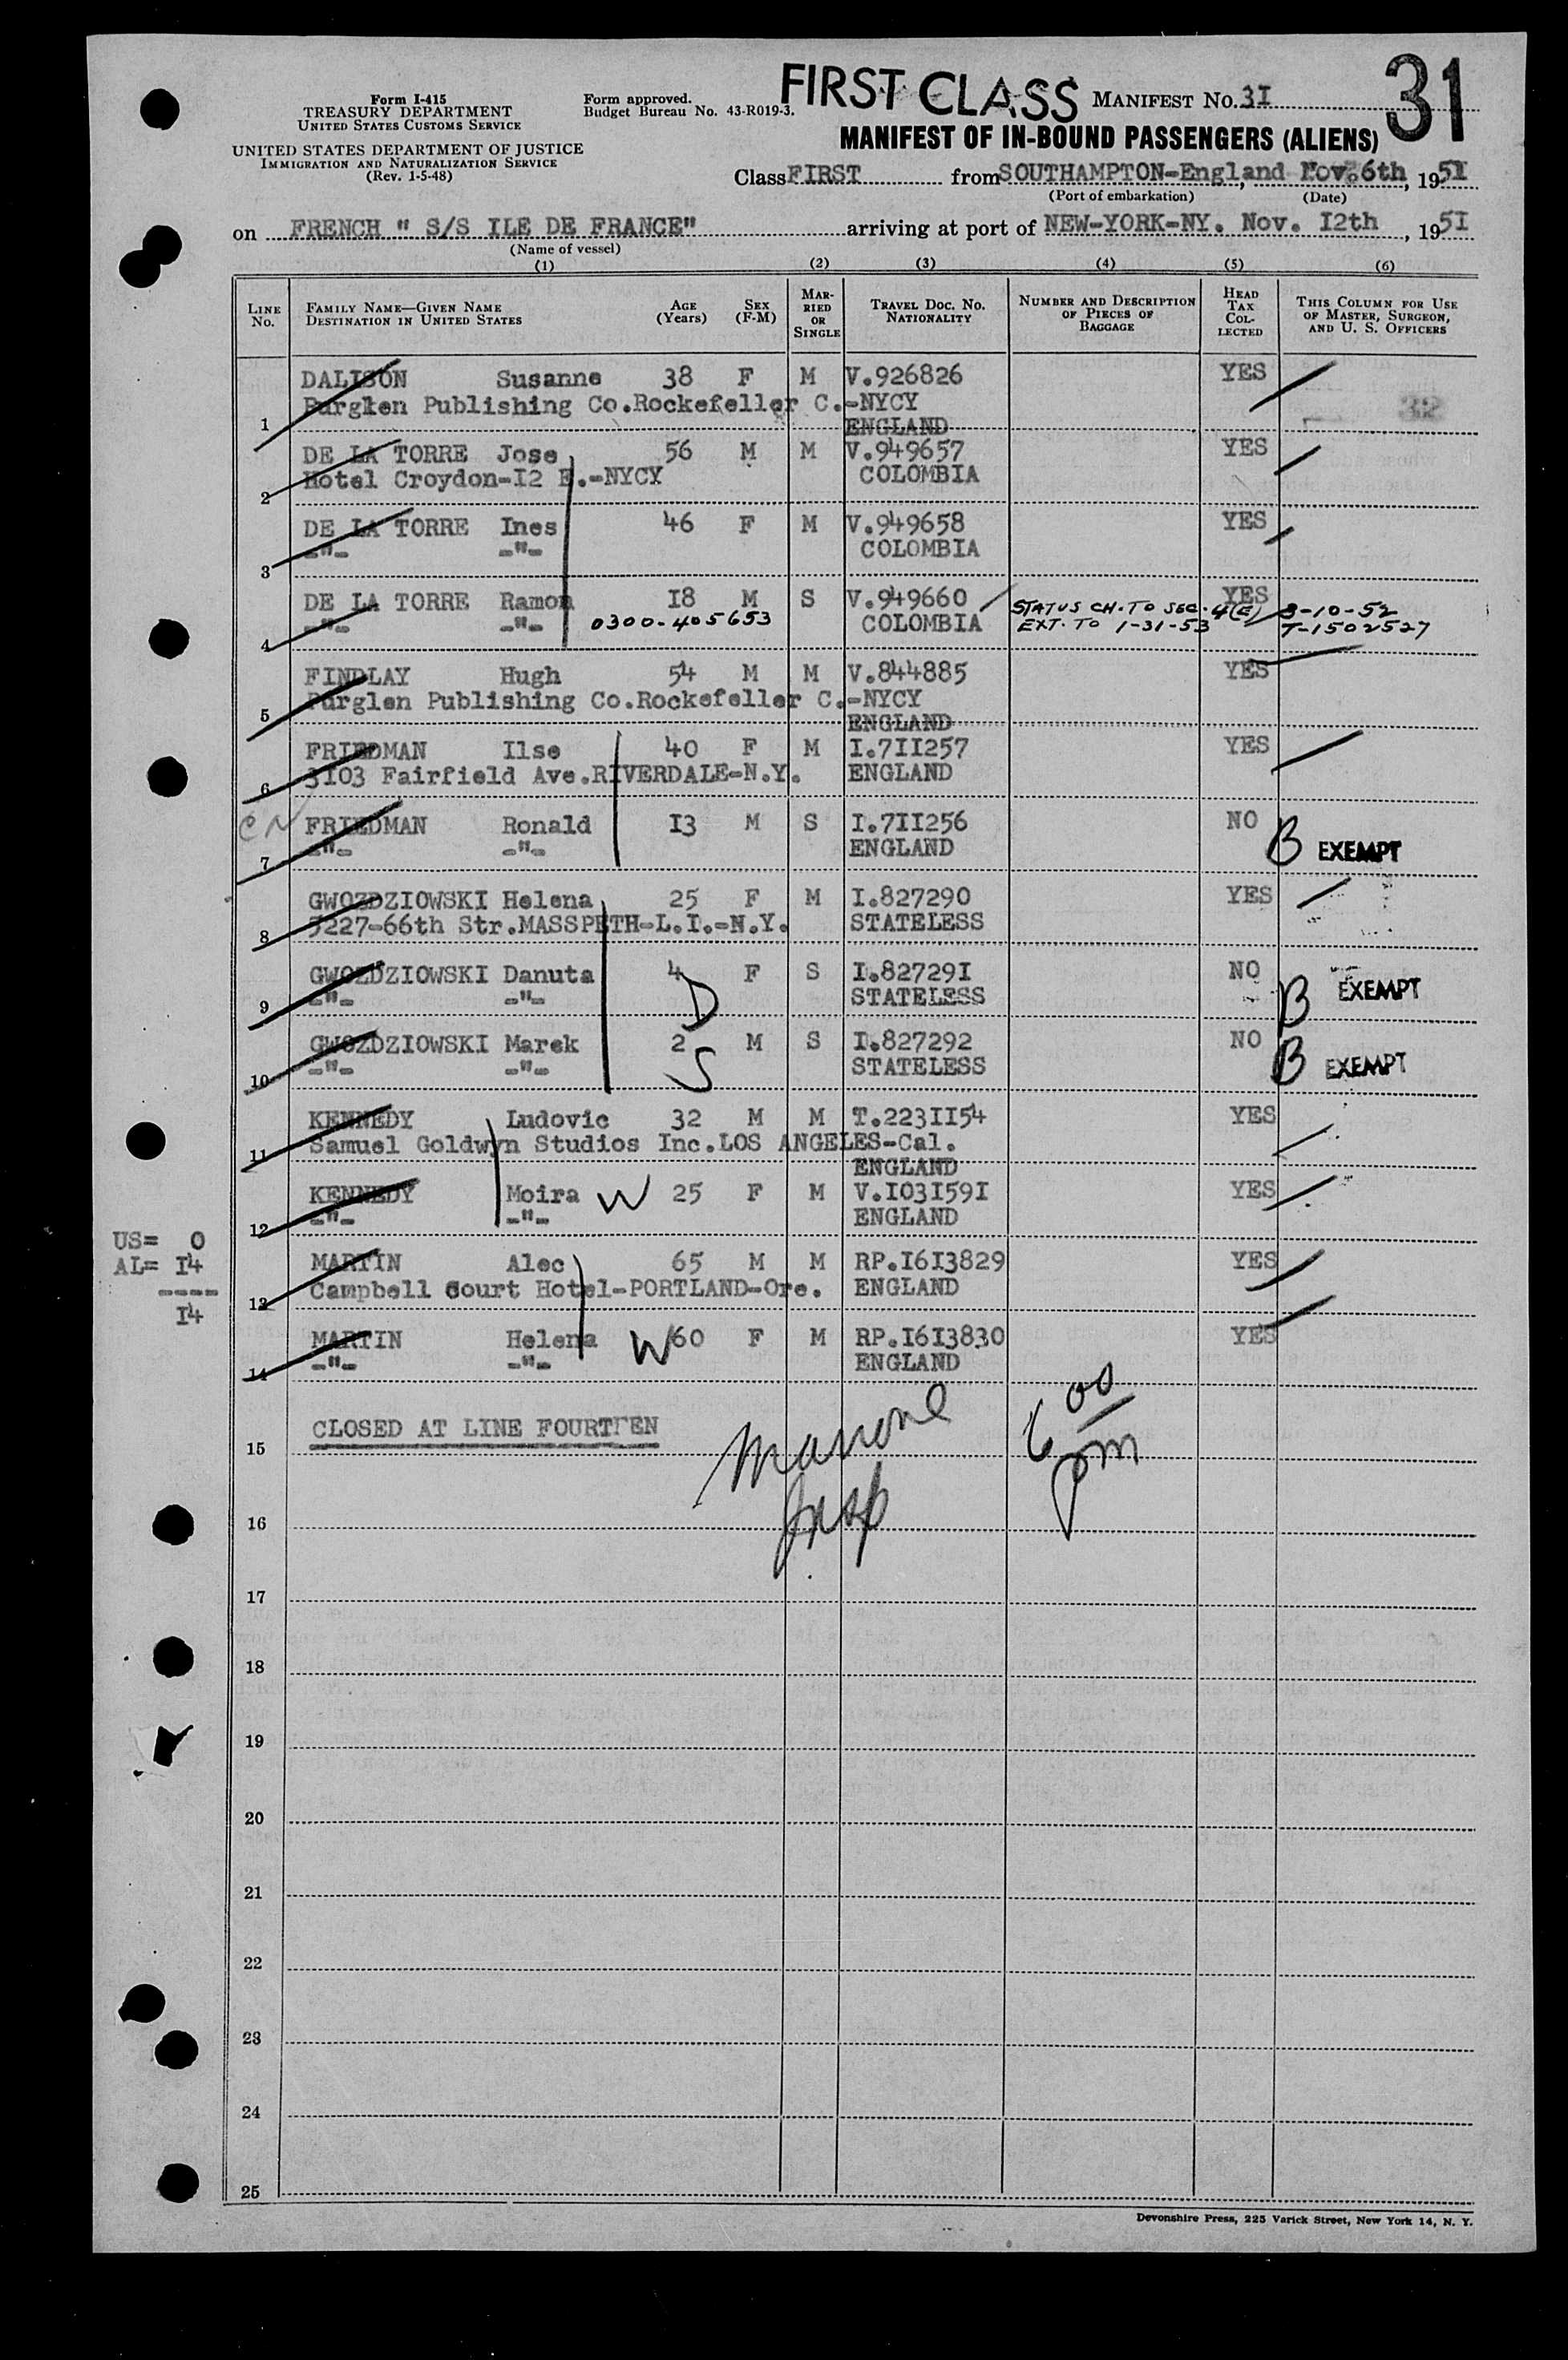 FIRST CLASS
31
Form I-415
TREASURY DEPARTMENT
UNITED STATES CUSTOMS SERVICE
UNITED STATES DEPARTMENT OF JUSTICE
IMMIGRATION AND NATURALIZATION SERVICE
(Rev. 1-5-48)
Form approved.
Budget Bureau No. 43-R019-3.
MANIFEST NO. 3I
MANIFEST OF IN-BOUND PASSENGERS (ALIENS)
Class FIRST from SOUTHAMPTON-England Nov. 6th, 1951
(Port of embarkation) (Date)
on FRENCH " S/S ILE DE FRANCE" arriving at port of NEW-YORK-NY. Nov. I2th, 195I
(Name of vessel)
(1) (2) (3) (4) (5) (6)
LINE No. FAMILY NAME—GIVEN NAME DESTINATION IN UNITED STATES AGE (Years) SEX (F-M) MARRIED OR SINGLE TRAVEL DOC. NO. NATIONALITY NUMBER AND DESCRIPTION OF PIECES OF BAGGAGE HEAD TAX COLLECTED THIS COLUMN FOR USE OF MASTER, SURGEON, AND U. S. OFFICERS
DALISON Susanne 38 F M V.926826 YES
1 Purglen Publishing Co.Rockefeller C.-NYCY
ENGLAND
DE LA TORRE Jose 56 M M V.949657 YES
2 Hotel Croydon-I2 E.-NYCY COLOMBIA
DE LA TORRE Ines 46 F M V.949658 YES
3 -"- -"- COLOMBIA
DE LA TORRE Ramon I8 M S V.949660 YES
4 -"- -"- 0300-405653 COLOMBIA STATUS CH. TO SEC. 4(E) 3-10-52
EXT. TO 1-31-53 T-1502527
FINDLAY Hugh 54 M M V.844885 YES
5 Purglen Publishing Co.Rockefeller C.-NYCY
ENGLAND
FRIEDMAN Ilse 40 F M I.7II257 YES
6 3I03 Fairfield Ave.RIVERDALE-N.Y. ENGLAND
CN FRIEDMAN Ronald I3 M S I.7II256 NO
7 -"- -"- ENGLAND B EXEMPT
GWOZDZIOWSKI Helena 25 F M I.827290 YES
8 5227-66th Str.MASSPETH-L.I.-N.Y. STATELESS
GWOZDZIOWSKI Danuta 4 F S I.82729I NO
9 -"- -"- D STATELESS B EXEMPT
GWOZDZIOWSKI Marek 2 M S I.827292 NO
10 -"- -"- S STATELESS B EXEMPT
KENNEDY Ludovic 32 M M T.223II54 YES
11 Samuel Goldwyn Studios Inc.LOS ANGELES-Cal.
ENGLAND
KENNEDY Moira W 25 F M V.I03I59I YES
12 -"- -"- ENGLAND
US= 0
AL= I4
----
I4
MARTIN Alec 65 M M RP.I6I3829 YES
13 Campbell Court Hotel-PORTLAND-Ore. ENGLAND
MARTIN Helena W 60 F M RP.I6I3830 YES
14 -"- -"- ENGLAND
15 CLOSED AT LINE FOURTEEN
Marrone 6 00 pm
Insp
16
17
18
19
20
21
22
23
24
25
Devonshire Press, 225 Varick Street, New York 14, N. Y.